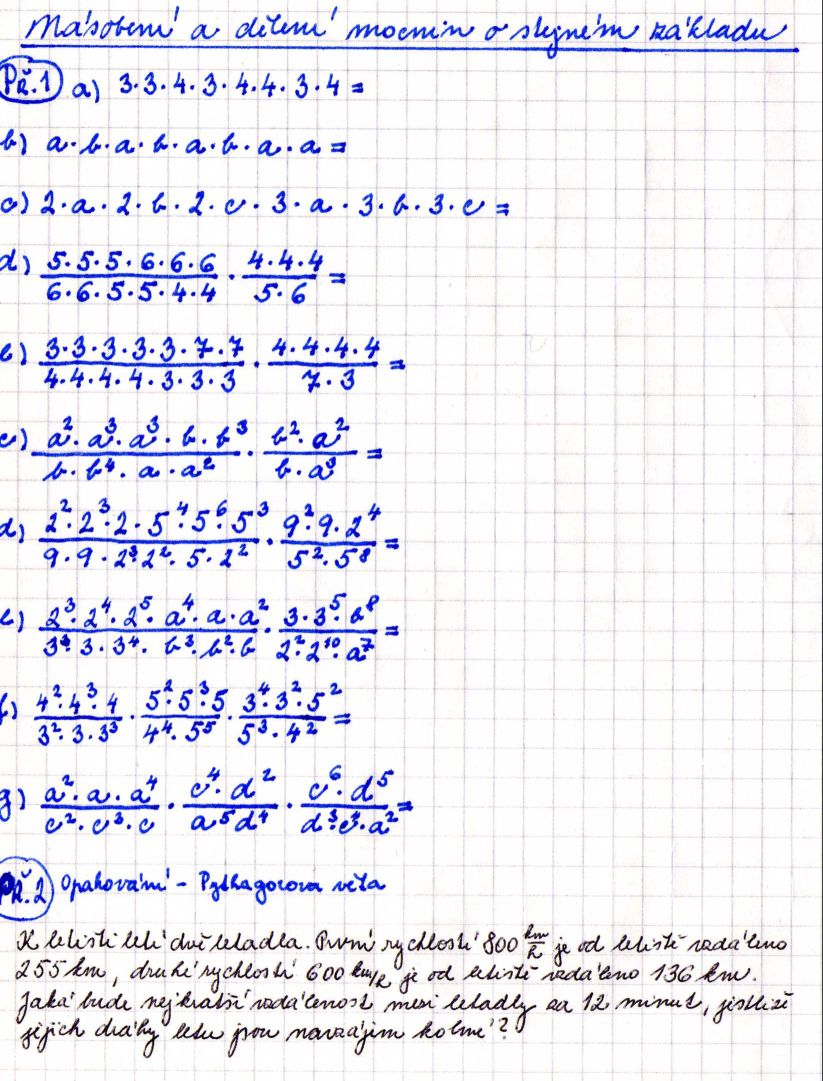 Násobení a dělení mocnin o stejném základu
Př.1 a) 3·3·4·3·4·4·3·4 =
b) a·b·a·b·a·b·a·a =
c) 2·a·2·b·2·c·3·a·3·b·3·c =
d) (5·5·5·6·6·6)/(6·6·5·5·4·4) · (4·4·4)/(5·6) =
e) (3·3·3·3·3·7·7)/(4·4·4·4·3·3·3) · (4·4·4·4)/(7·3) =
c) (a²·a³·a³·b·b³)/(b·b⁴·a·a²) · (b²·a²)/(b·a³) =
d) (2²·2³·2·5⁴·5⁶·5³)/(9·9·2³·2²·5·2²) · (9²·9·2⁴)/(5²·5⁸) =
e) (2³·2⁴·2⁵·a⁴·a·a²)/(3·3·3⁴·b³·b²·b) · (3·3⁵·b⁸)/(2²·2¹⁰·a⁷) =
f) (4²·4³·4)/(3²·3·3³) · (5²·5³·5)/(4⁴·5⁵) · (3⁴·3²·5²)/(5³·4²) =
g) (a²·a·a⁴)/(c²·c³·c) · (c⁴·d²)/(a⁵d⁴) · (c⁶·d⁵)/(d³·c·a²) =
Př.2 Opakování - Pythagorova věta
K letišti letí dvě letadla. První rychlostí 800 km/h je od letiště vzdáleno
255 km, druhé rychlostí 600 km/h je od letiště vzdáleno 136 km.
Jaká bude nejkratší vzdálenost mezi letadly za 12 minut, jestliže
jejich dráhy letu jsou navzájem kolmé?